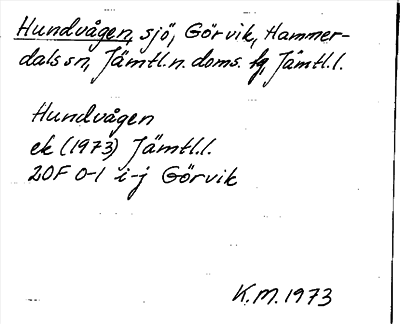 Hundvågen, sjö, Görvik, Hammer-
dals sn, Jämtl.n. doms. fg, Jämtl.l.
Hundvågen
ek (1973) Jämtl.l.
20F 0-1 i-j Görvik
K.M. 1973